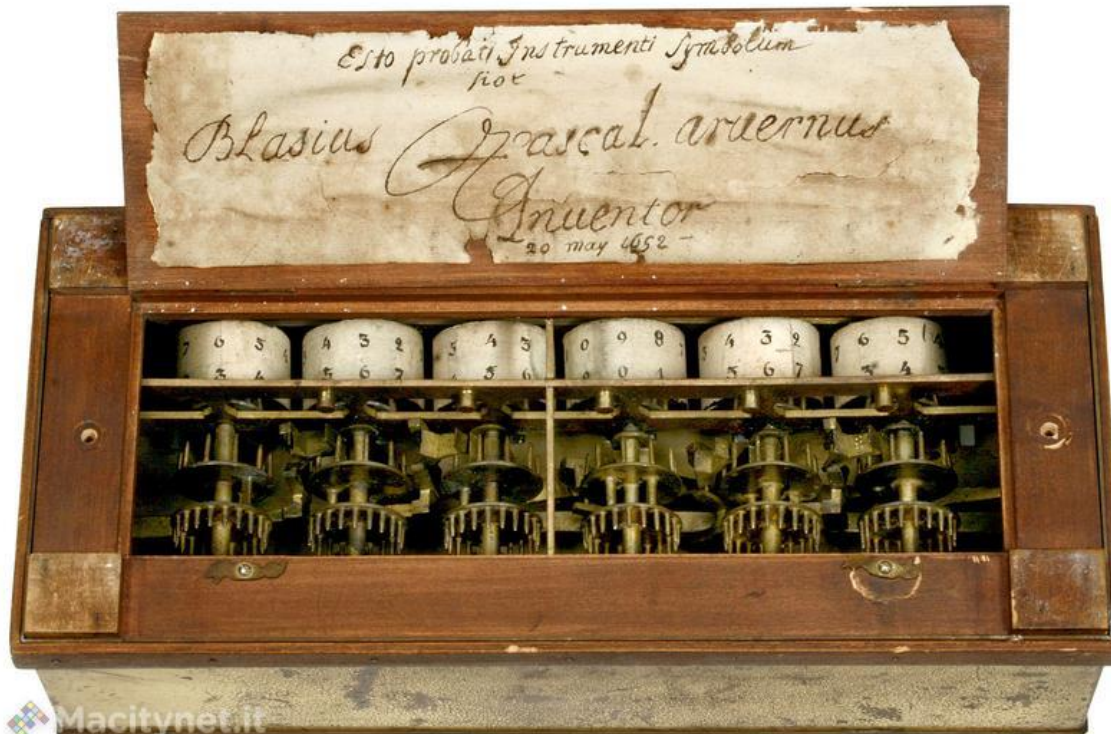 Esto probati Instrumenti symbolum
hoc
Blasius Pascal. arvernus
Inventor
20 may 1652
7 6 5 4 3 2 5 4 3 0 9 8 4 3 2 7 6 5 4
3 4 5 6 7 5 6 0 0 1 5 6 7 3 4
Macitynet.it